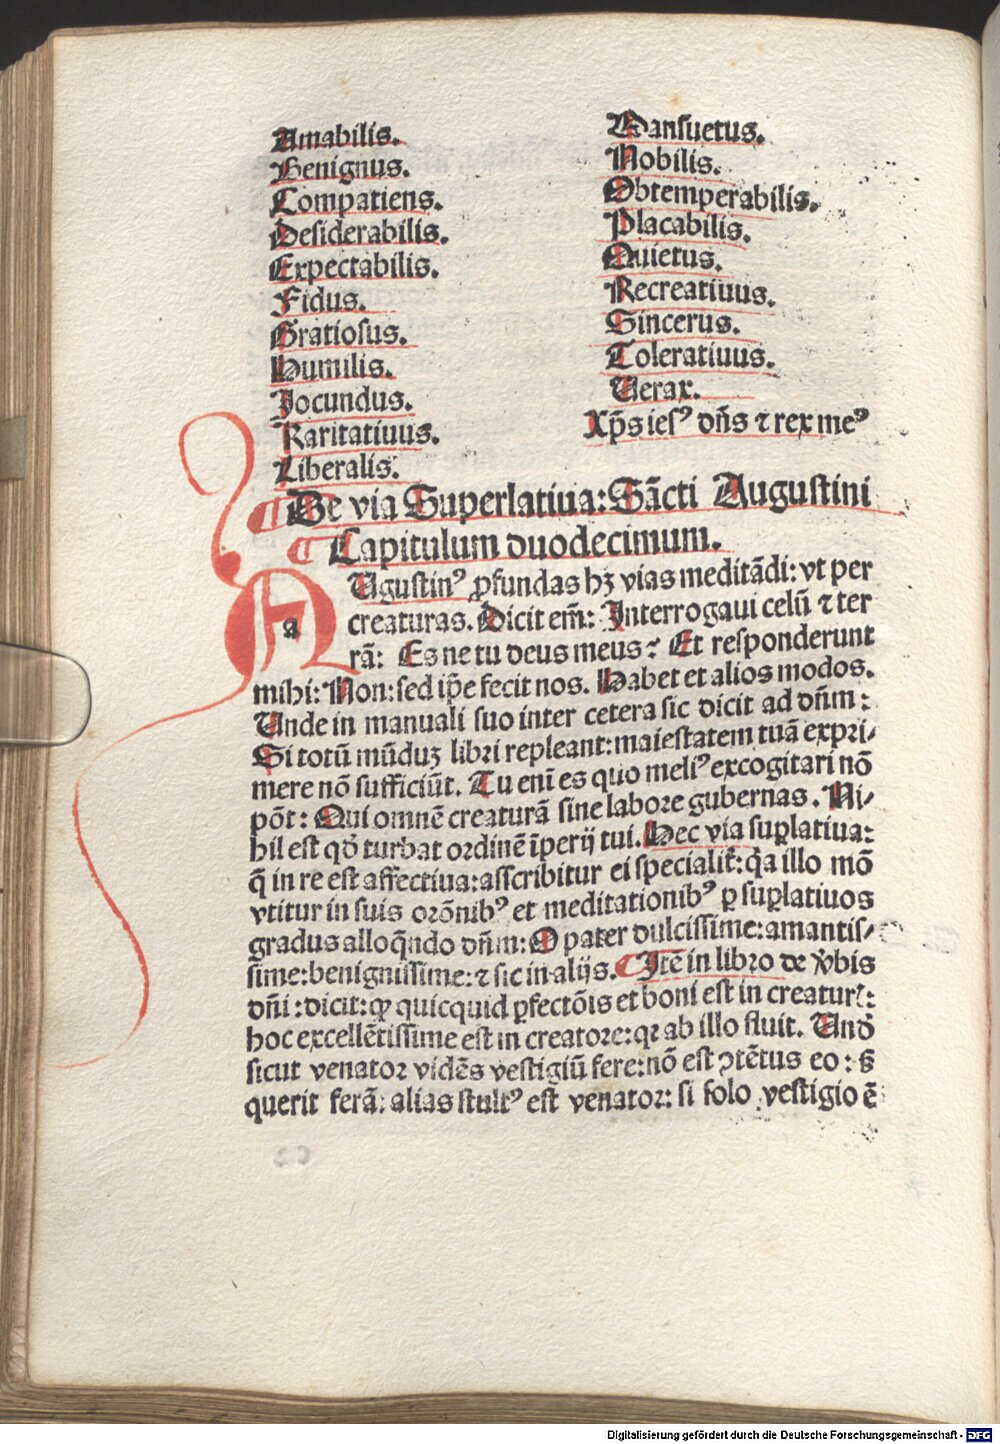 Amabilis.
Benignus.
Compatiens.
Desiderabilis.
Expectabilis.
Fidus.
Gratiosus.
Humilis.
Jocundus.
Karitatiuus.
Liberalis.
Mansuetus.
Nobilis.
Obtemperabilis.
Placabilis.
Quietus.
Recreatiuus.
Sincerus.
Toleratiuus.
Uerax.
Xp̄s iesꝰ dn̄s ⁊ rex meꝰ
De via Superlatiua: Sācti Augustini
Capitulum duodecimum.
a Ugustinꝰ ꝓfundas hꝫ vias meditādi: vt per
creaturas. Dicit em̄: Interrogaui celū ⁊ ter
rā: Es ne tu deus meus? Et responderunt
mihi: Non: sed ip̄e fecit nos. Habet et alios modos.
Unde in manuali suo inter cetera sic dicit ad dn̄m:
Si totū mūduꝫ libri repleant: maiestatem tuā expri/
mere nō sufficiūt. Tu enī es quo meliꝰ excogitari nō
pōt: Qui omnē creaturā sine labore gubernas. Ni/
hil est qd̓ turbat ordinē īperij tui. Hec via suꝑlatiua:
q̄ in re est affectiua: asscribitur ei specialit̓: q̓a illo mō
vtitur in suis orōnibꝰ et meditationibꝰ ꝑ suꝑlatiuos
gradus alloq̄ndo dn̄m: O pater dulcissime: amantis/
sime: benignissime: ⁊ sic in alijs. Itē in libro de v̓bis
dn̄i: dicit: qꝛ quicquid ꝑfectōis et boni est in creatur̓:
hoc excellētissime est in creatore: qꝛ ab illo fluit. Und̓
sicut venator vidēs vestigiū fere: nō est ↄtētus eo: s̓
querit ferā: alias stultꝰ est venator: si solo vestigio ē
Digitalisierung gefördert durch die Deutsche Forschungsgemeinschaft - DFG